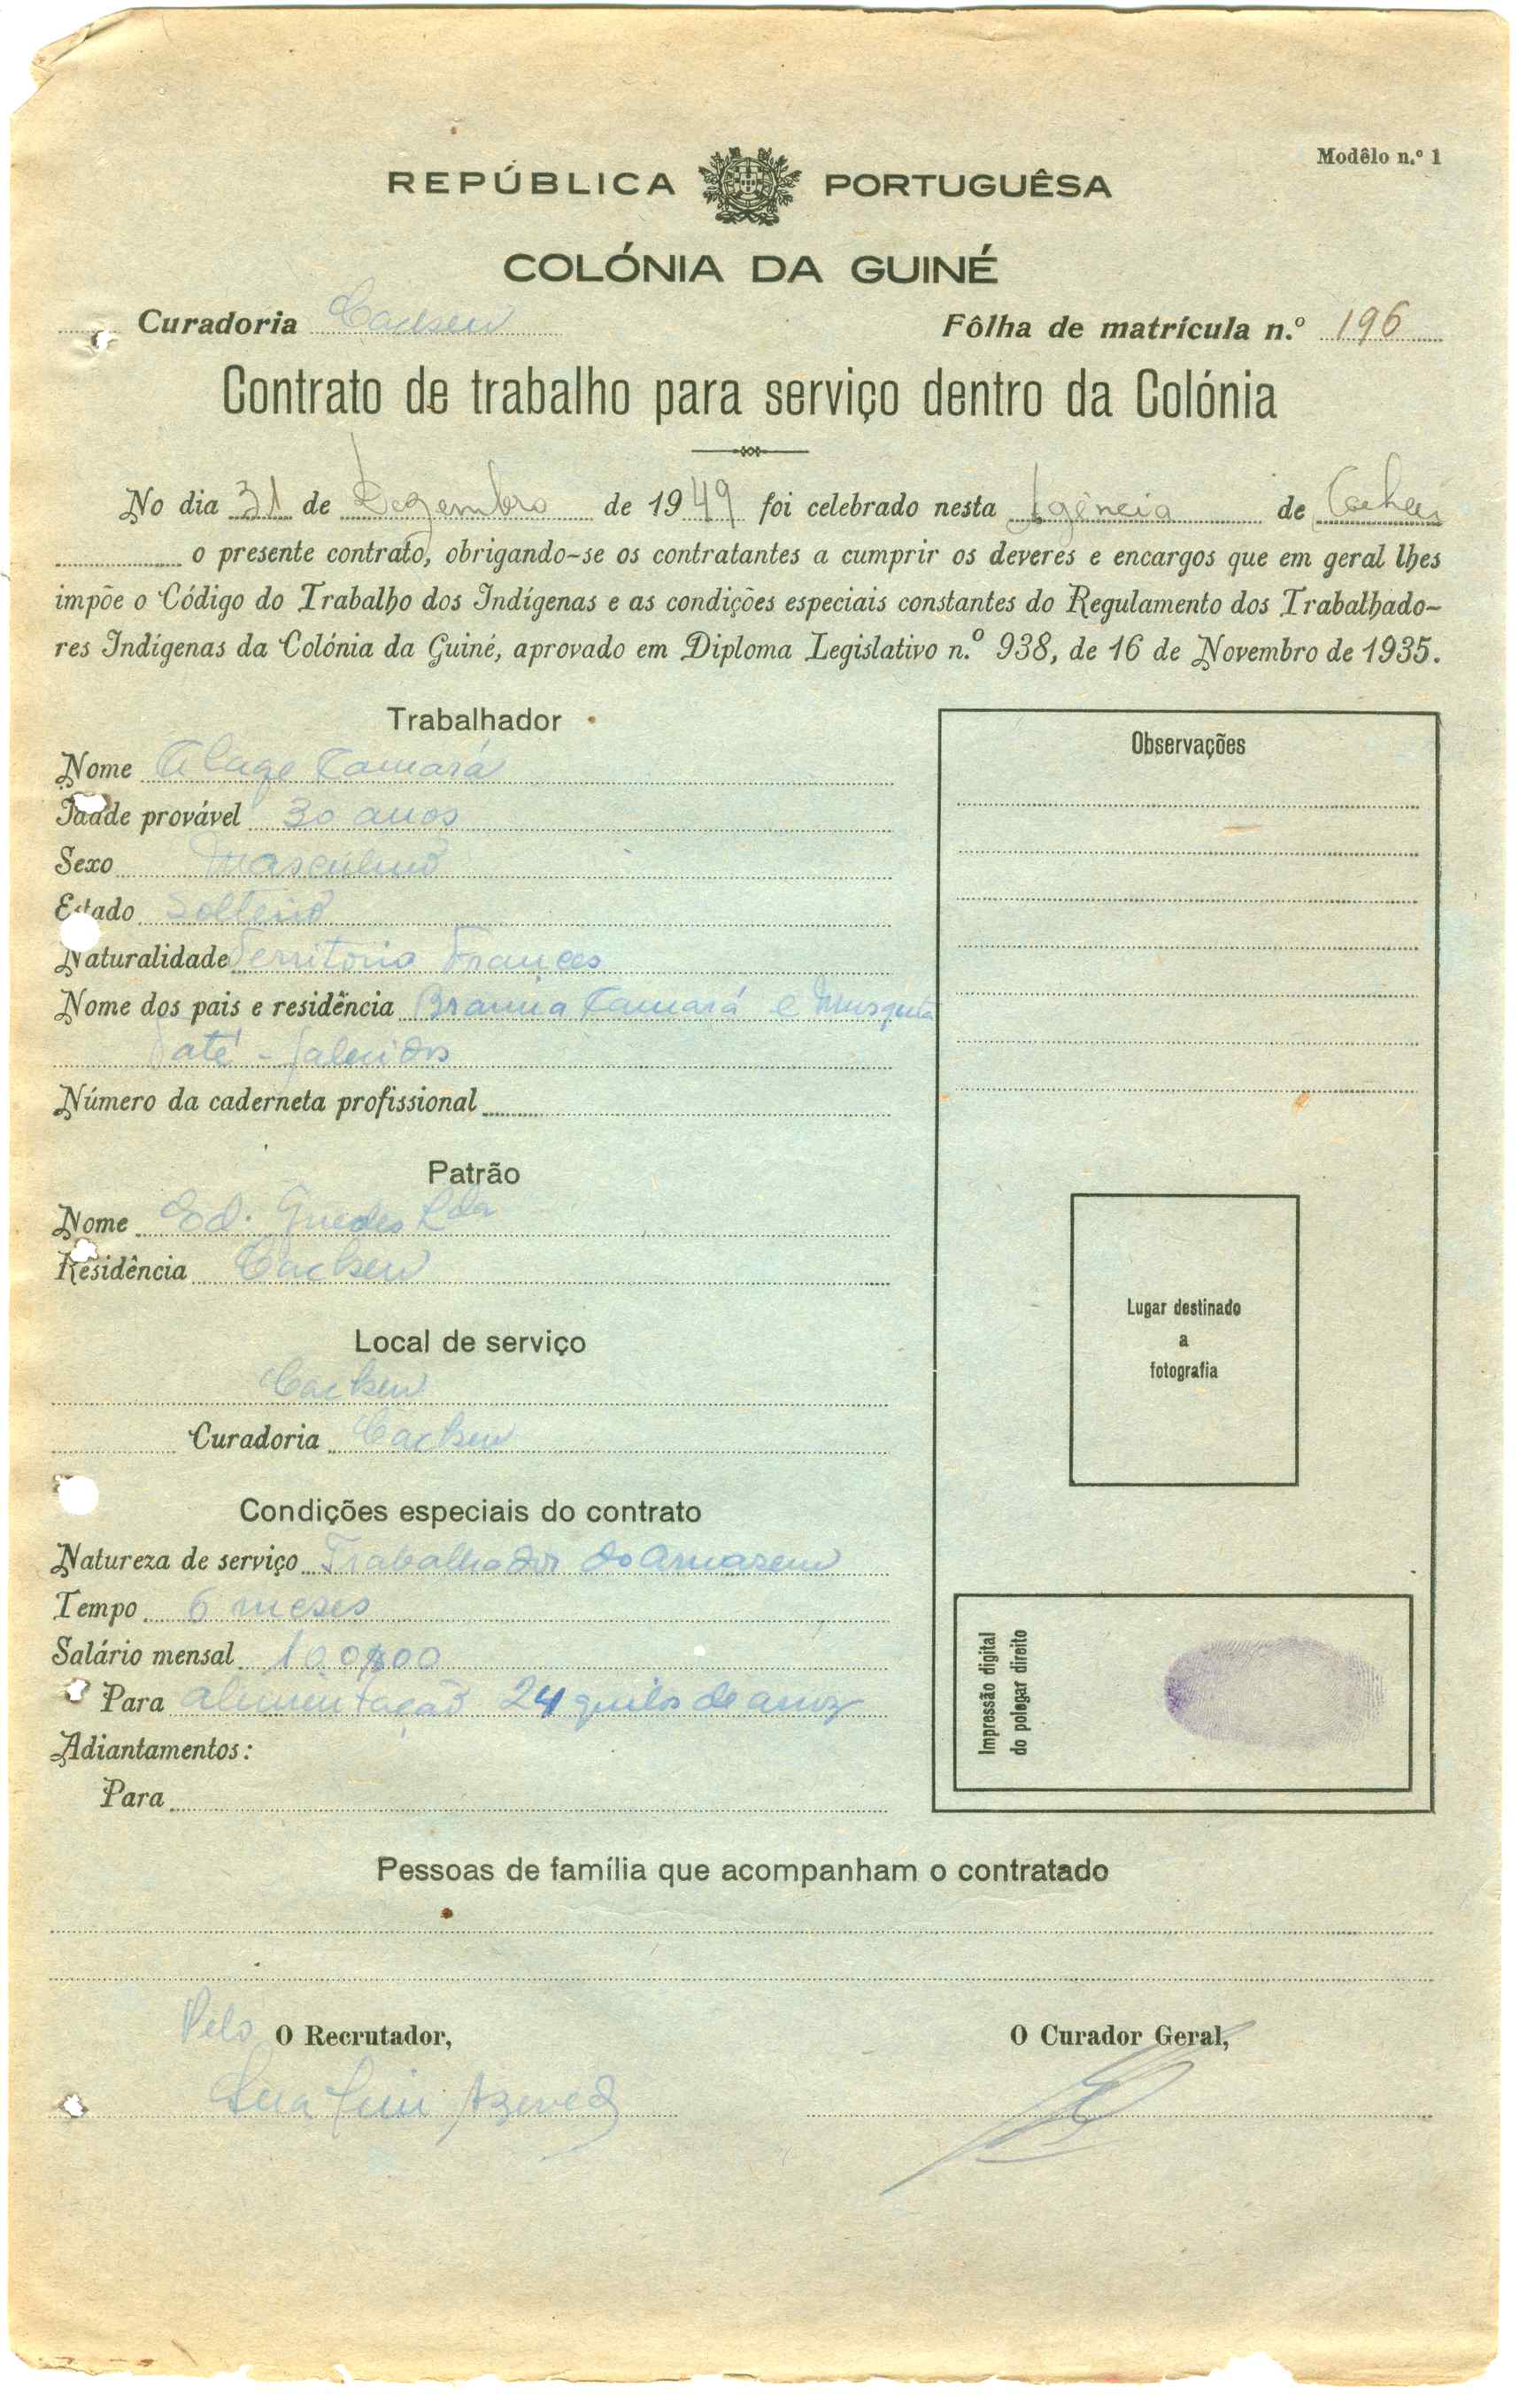 Modêlo n.º 1
REPÚBLICA PORTUGUÊSA
COLÓNIA DA GUINÉ
Curadoria Cacheu Fôlha de matrícula n.º 196
Contrato de trabalho para serviço dentro da Colónia
No dia 31 de Dezembro de 1949 foi celebrado nesta Agência de Cacheu
o presente contrato, obrigando-se os contratantes a cumprir os deveres e encargos que em geral lhes
impõe o Código do Trabalho dos Indígenas e as condições especiais constantes do Regulamento dos Trabalhado-
res Indígenas da Colónia da Guiné, aprovado em Diploma Legislativo n.º 938, de 16 de Novembro de 1935.
Trabalhador
Nome Alage Camará
Idade provável 30 anos
Sexo Masculino
Estado Solteiro
Naturalidade Territorio Frances
Nome dos pais e residência Brama Camará e
Saté - falecidos
Número da caderneta profissional
Patrão
Nome Ed. Guedes Lda
Residência Cacheu
Local de serviço
Cacheu
Curadoria Cacheu
Condições especiais do contrato
Natureza de serviço Trabalhador do Armazem
Tempo 6 meses
Salário mensal 100$00
Para alimentação 24 quilos de arroz
Adiantamentos:
Para
Observações
Lugar destinado
a
fotografia
Impressão digital
do polegar direito
Pessoas de família que acompanham o contratado
Pelo O Recrutador,
O Curador Geral,
Azevedo